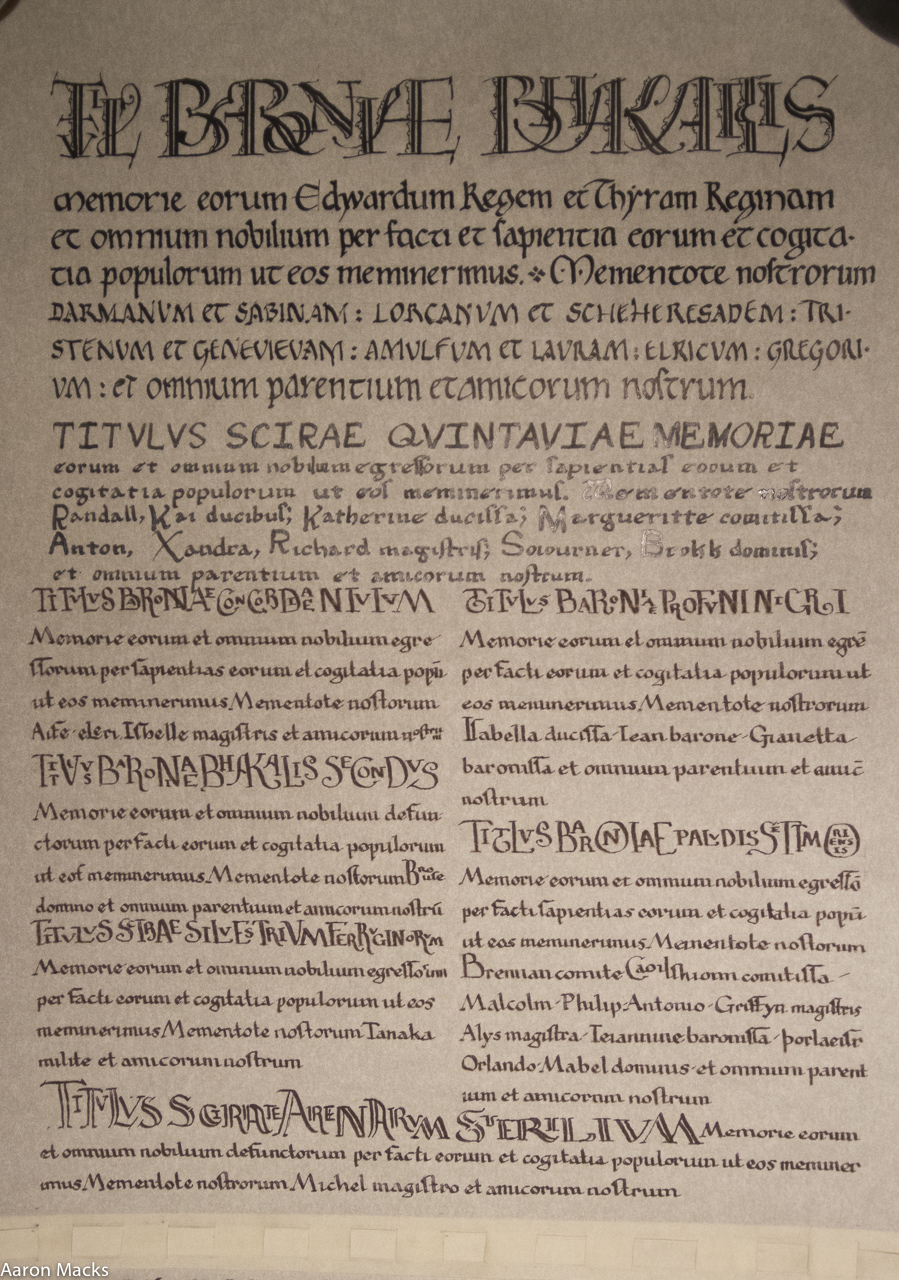 TI BARONIAE BHAKAILIS
memorie eorum Edwardum Regem et Thyram Reginam
et omnium nobilium per facti et sapientia eorum et cogita-
tia populorum ut eos meminerimus. Mementote nostrorum
DARMANVM et SABINAM: LORCANVM et SCHEHERESADEM: TRI-
STENVM et GENEVIEVAM: AMULFUM et LAVRAM: ELRICVM: GREGORI-
VM: et omnium parentium et amicorum nostrum.
TITVLVS SCIRAE QVINTAVIAE MEMORIAE
eorum et omnium nobilium egressorum per sapientias eorum et
cogitatia populorum ut eos meminerimus. Mementote nostrorum
Randall, Kai ducibus; Katherine ducissa; Margueritte comitissa;
Anton, Xandra, Richard magistris; Sojourner, Brokk dominis;
et omnium parentium et amicorum nostrum.
TITULUS BARONIAE CONCORDIAE NIVIUM
Memorie eorum et omnium nobilium egre
ssorum per sapientias eorum et cogitatia popũ
ut eos meminerimus. Mementote nostorum
magistris et amicorum
TITLVS BARONAE BHAKAILIS SECONDVS
Memorie eorum et omnium nobilium defun-
ctorum per facti eorum et cogitatia populorum
ut eos meminerimus. Mementote nostorum
domno et omnium parentium et amicorum nostrũ
TITULUS STRAE SILVESTRIVM FERRVGINORVM
Memorie eorum et omnium nobilium
per facti eorum et cogitatia populorum ut eos
meminerimus Mementote nostorum Tanaka
milite et amicorum nostrum
TITULUS BARONAE PROFVNI NIGRI
Memorie eorum et omnium nobilium egrẽ
per facti eorum et cogitatia populorum ut
eos meminerimus Mementote nostrorum
Isabella ducissa · Iean barone · Gianetta
baronissa et omnium parentium et amic̃
nostrum
TITLVS BARONIAE PALVDIS SETIMORIENSIS
Memorie eorum et omnium nobilium egressõ
per facti sapientias eorum et cogitatia popũ
ut eos meminerimus Mementote nostorum
Brennan comite Caoilfhionn comitissa -
Malcolm · Philip · Antonio · Griffyn magistris
Alys magistra · Jeiannine baronissa · þorlaeifr
Orlando · Mabel dominis · et omnium parent
ium et amicorum nostrum
TITULUS SCIRAE ARENARVM STERILIVM Memorie eorum
et omnium nobilium defunctorum per facti eorum et cogitatia populorum ut eos meminer
imus. Mementote nostrorum Michel magistro et amicorum nostrum
Aaron Macks